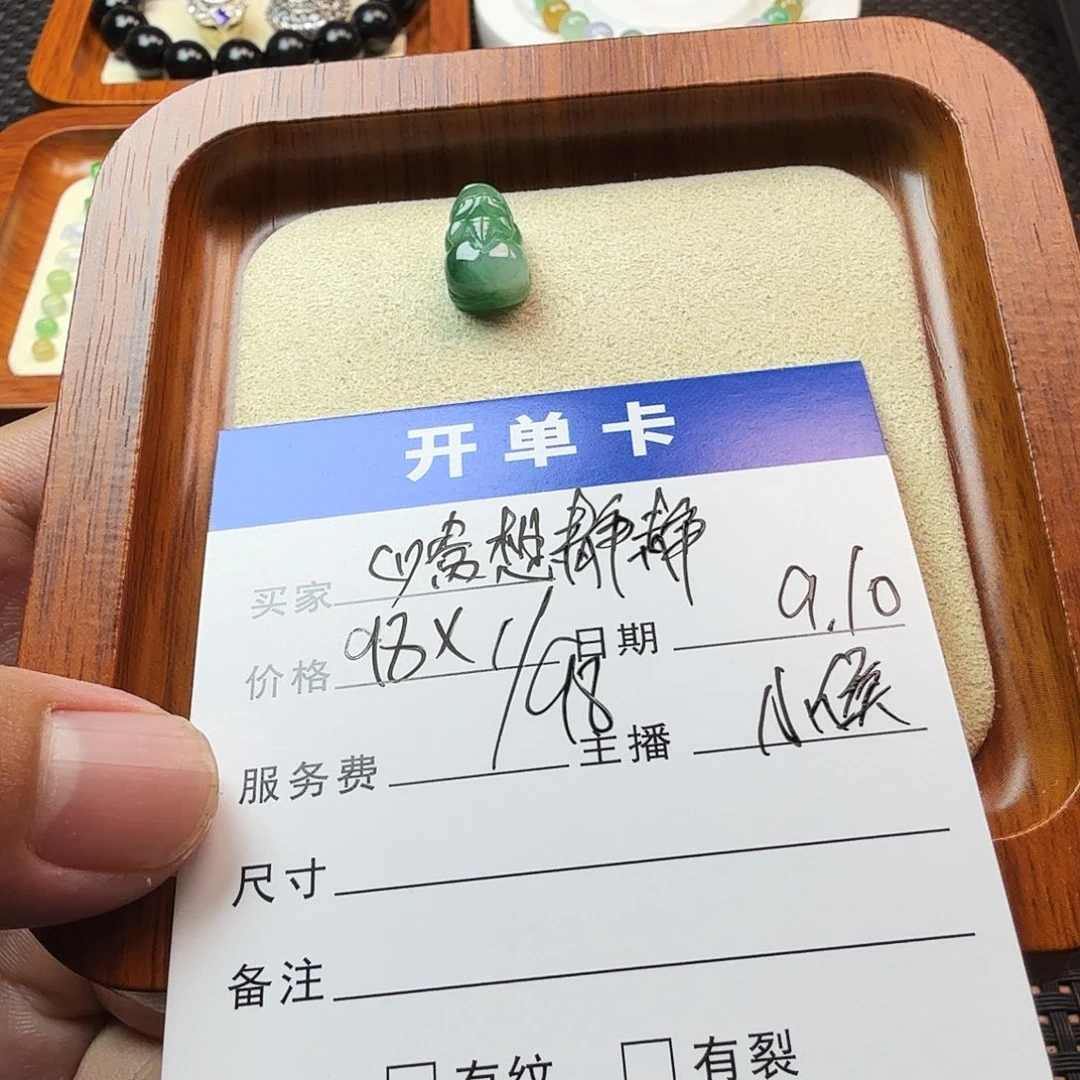 开单卡
买家 想静静
价格 98X1/98 日期 9.10
服务费 主播 小侯
尺寸
备注
有纹 有裂